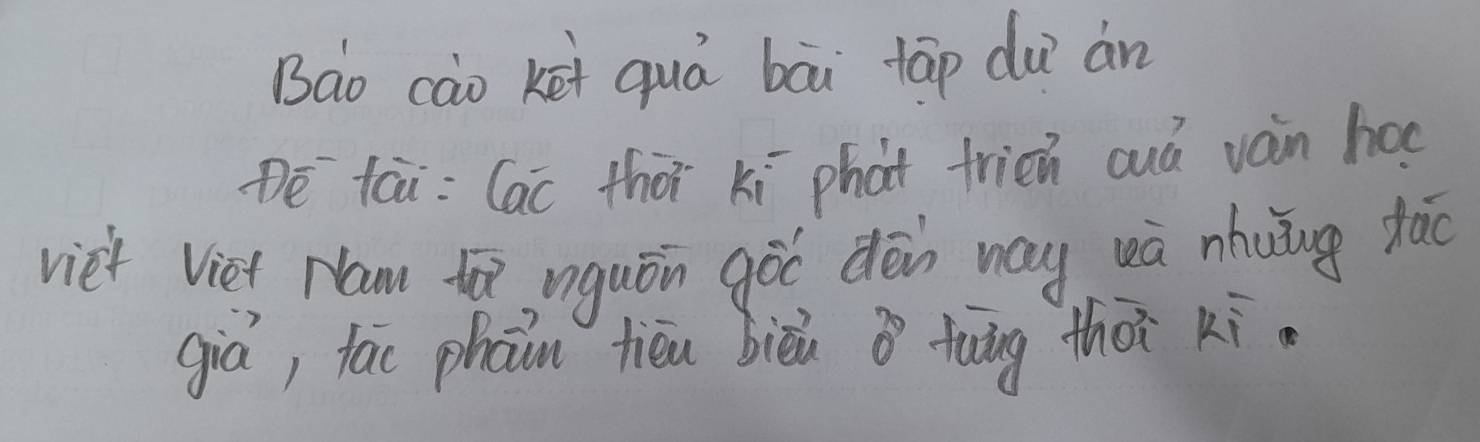 Báo cáo kết quả bài tập dự án
Đề tài: Các thời kì phát triển cuả văn học
viết Việt Nam từ nguồn gốc đến nay và những tác
giả, tác phẩm tiêu biểu ở từng thời kì.